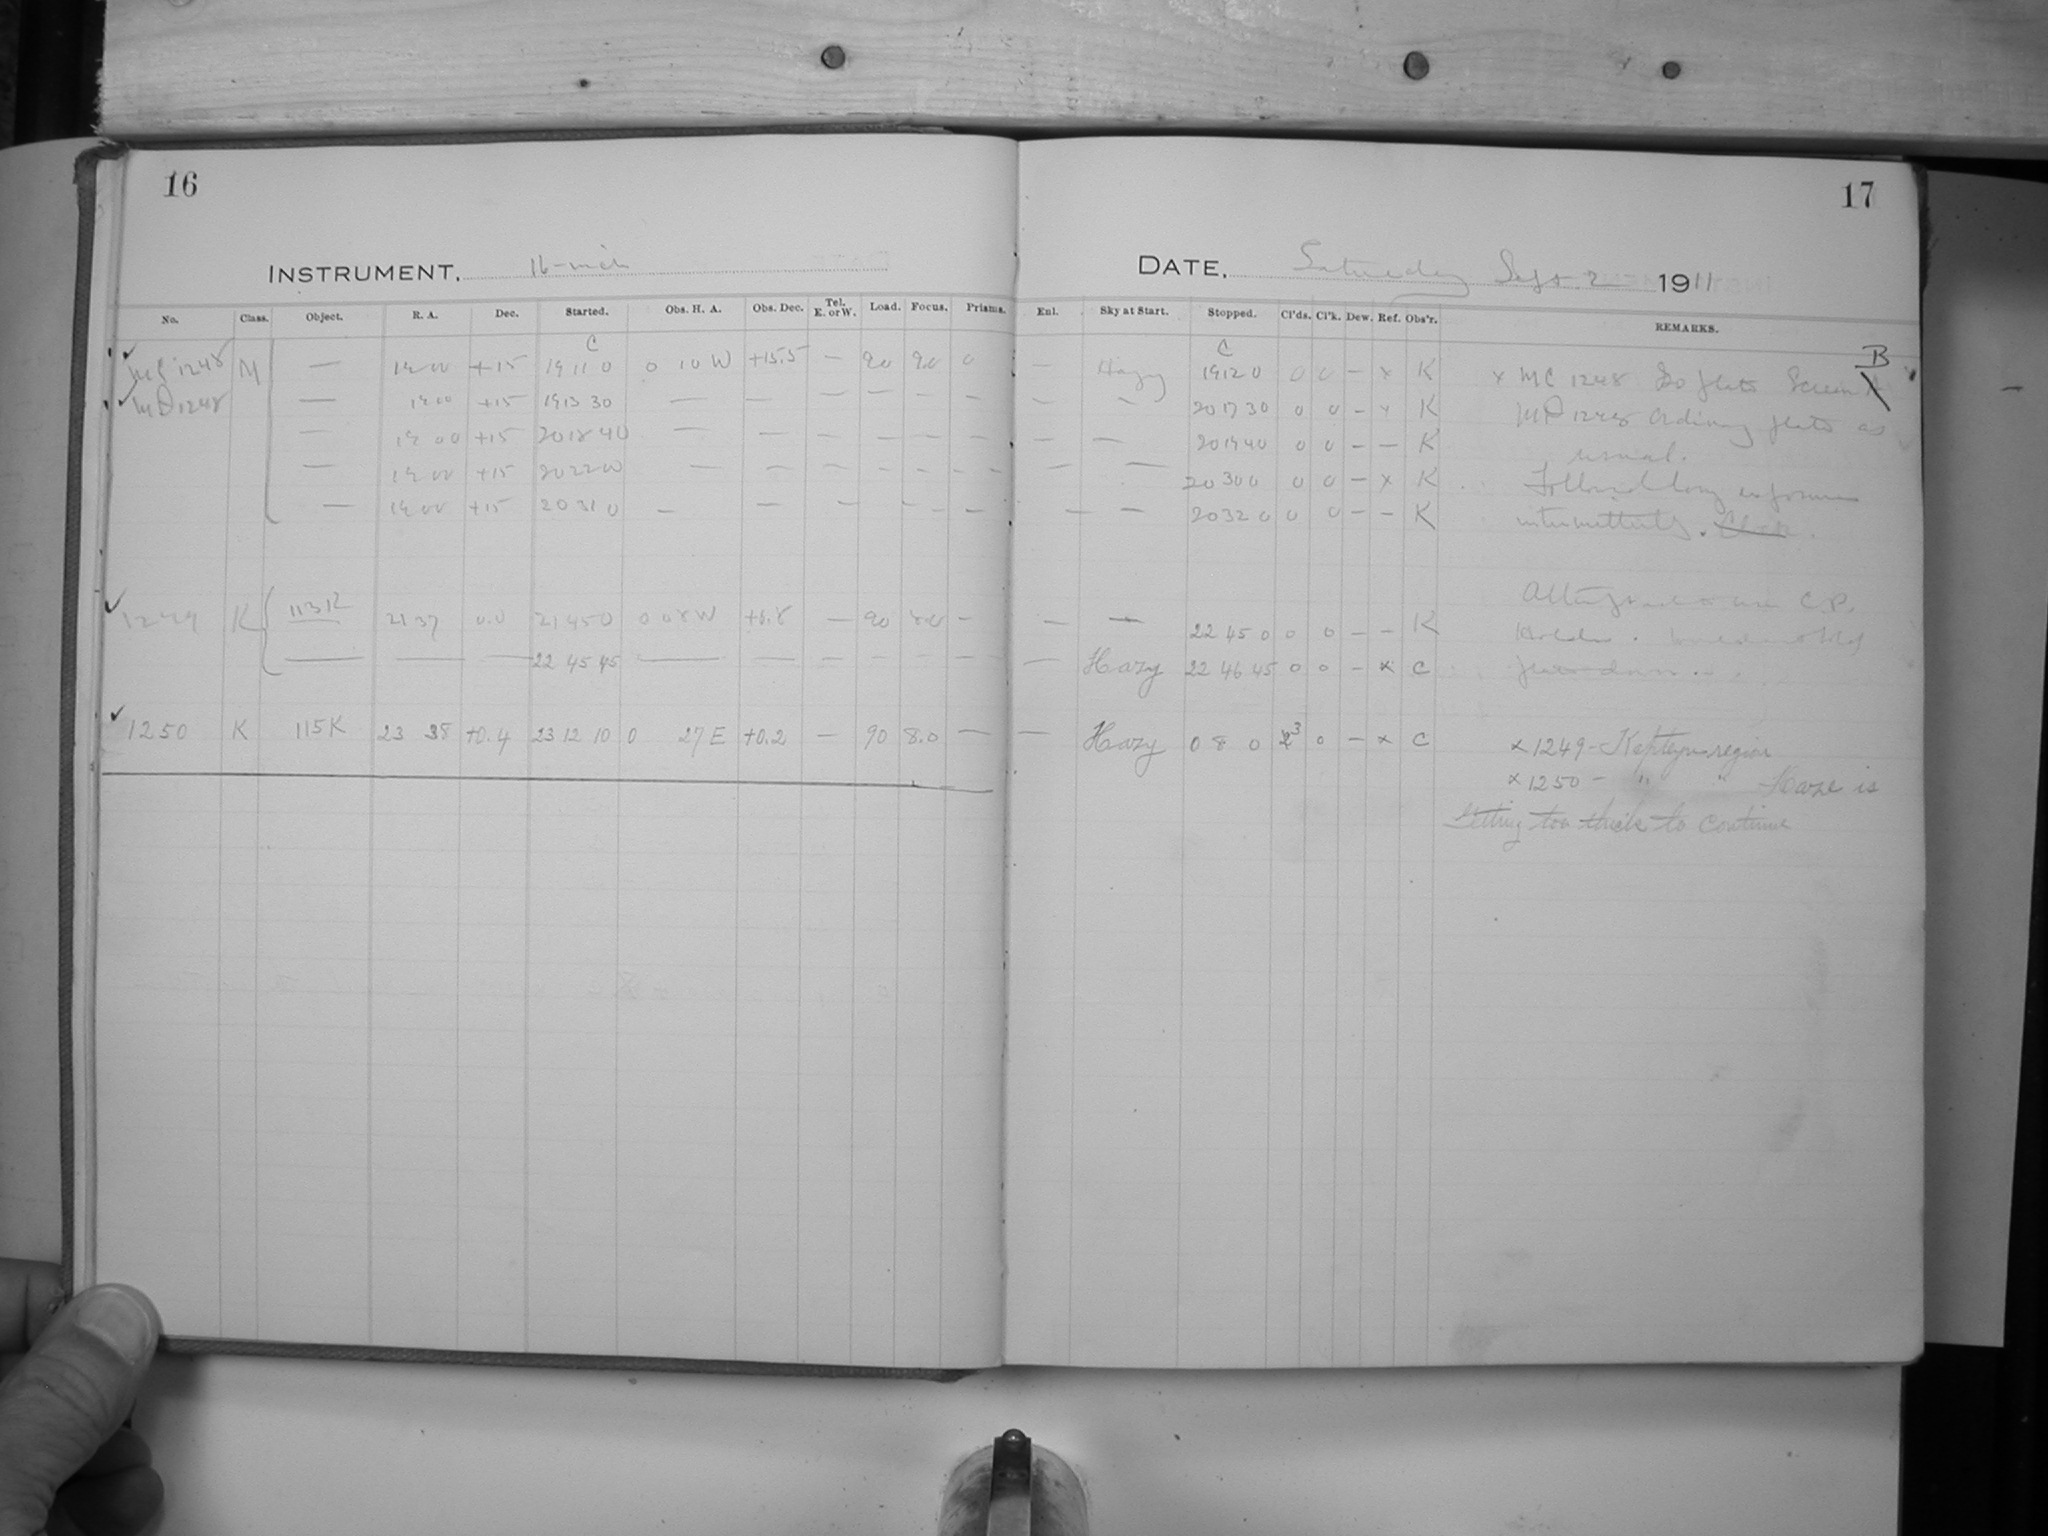 16
17
INSTRUMENT. 16-inch
DATE. Saturday Sept 2 1911
No. Class. Object. R. A. Dec. Started. Obs. H. A. Obs. Dec. Tel. E. or W. Load. Focus. Prisms. Enl. Sky at Start. Stopped. Cl'ds. Cl'k. Dew. Ref. Obs'r. REMARKS.
C C B
MC 1248 M — 19 00 +15 19 11 0 0 10 W +15.5 — 90 9.0 0 — Hazy 19 12 0 0 0 — x K x MC 1248 Screen
MD 1248 — 19 00 +15 19 13 30 — — — — — — — — 20 17 30 0 0 — x K MD 1248 Ordinary plate as
— 19 00 +15 20 18 40 — — — — — — — — 20 19 40 0 0 — — K usual.
— 19 00 +15 20 22 0 — — — — — — — — 20 30 0 0 0 — x K Followed long exposure
— 19 00 +15 20 31 0 — — — — — — — — 20 32 0 0 0 — — K intermittently. Clock.
1249 K 113K 21 37 0.0 21 45 0 0 08 W +0.8 — 90 8.0 — — — 22 45 0 0 0 — — K
C.P.
— — — 22 45 45 — — — — — — — Hazy 22 46 45 0 0 — x C
1250 K 115K 23 38 +0.4 23 12 10 0 27 E +0.2 — 90 8.0 — — Hazy 0 8 0 2 3 0 — x C x 1249 - Kapteyn region
x 1250 - " " Haze is
getting too thick to continue